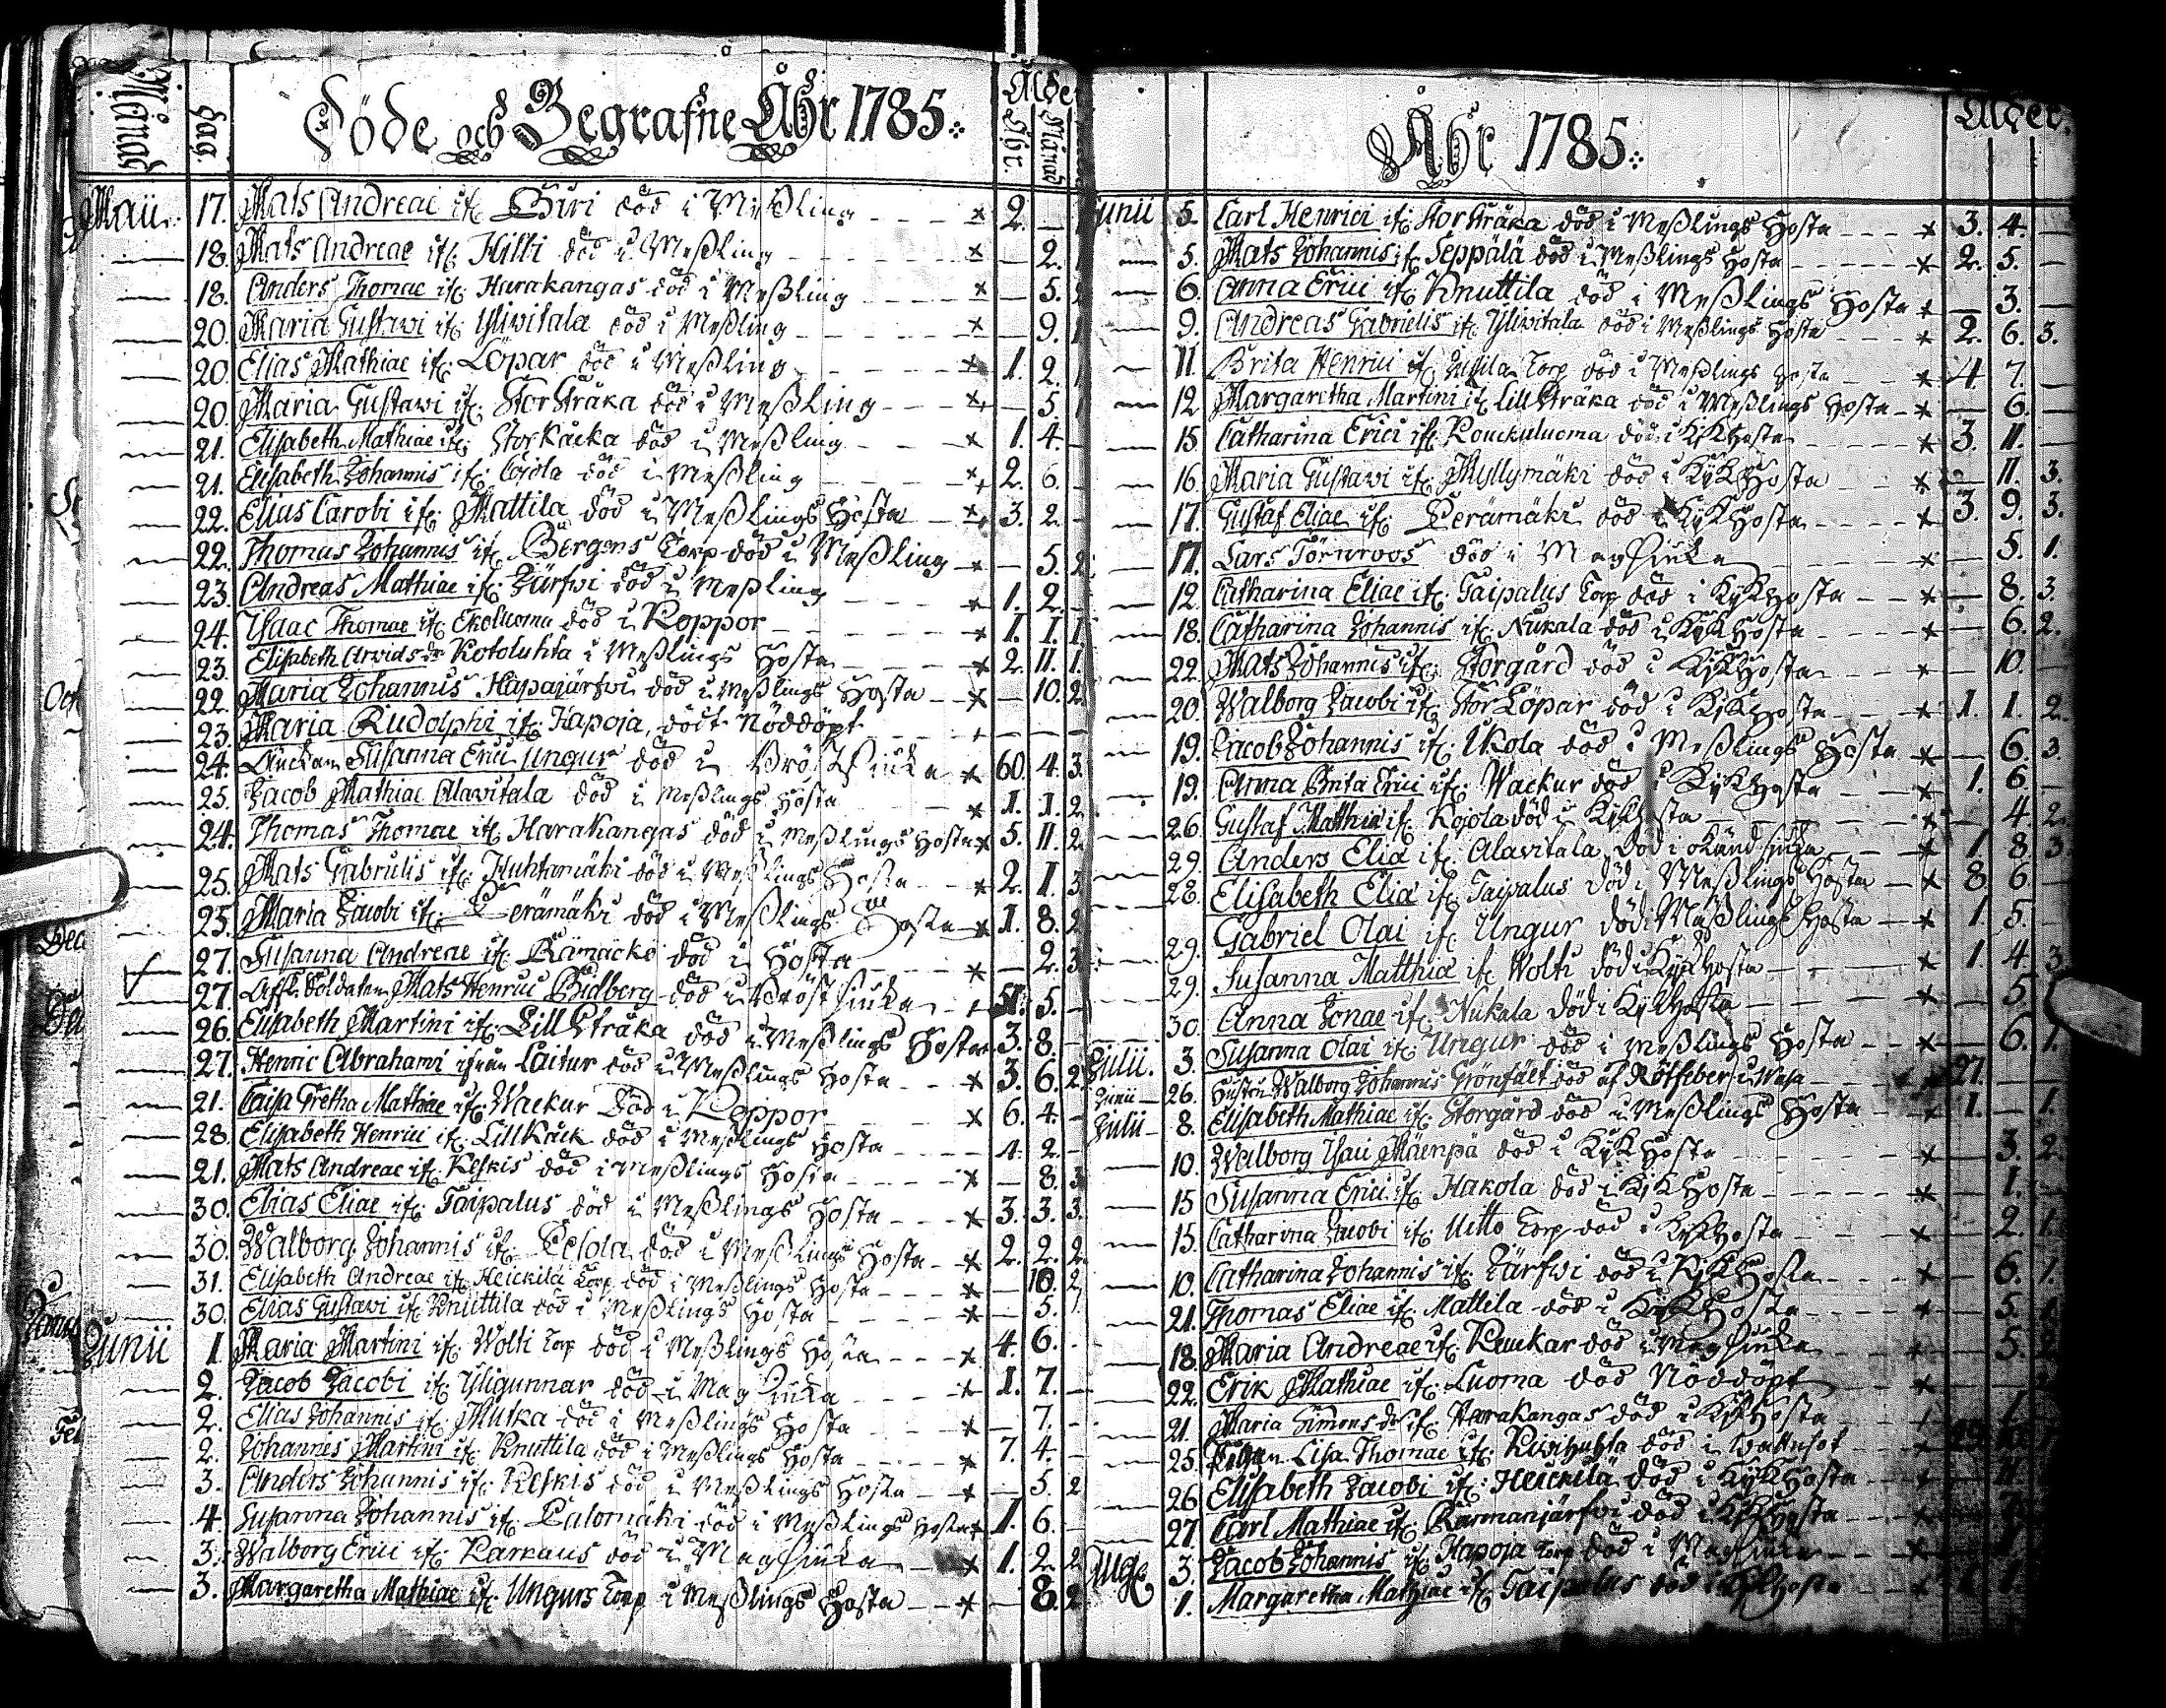 Månad
Daga
Döde och Begrafne Åhr 1785
Ålde
Åhr. Månad
Maii. 17. Mats Andreae if: Giri död i Meßling 2.
18. Mats Andreae if: Hilli död i Meßling 2.
18. Anders Thomae if: Harakangas död i Meßling 5.
20. Maria Gustavi if: Yliwitala död i Meßling 9.
20. Elias Mathiae if: Löpar död i Meßling 1. 2.
20. Maria Gustavi if: StorStråka död i Meßling 5.
21. Elisabeth Mathiae if: Storkäcka död i Meßling 1. 4.
21. Elisabeth Johannis if: död i Meßling 2. 6.
22. Elias Carobi if: Mattila död i Meßlings Hosta 3. 2.
22. Thomas Johannis if: Bergens Torp död i Meßling 5. 2.
23. Andreas Mathiae if: Järfwi död i Meßling 1. 2.
24. Isaac Thomae if: Ekoluoma död i Koppor 1. 1. 1.
23. Elisabeth Arvids dr Kotoluhta i Meßlings Hosta 2. 11. 1.
22. Maria Johannis Hapajärfwi död i Meßlings Hosta 10. 2.
23. Maria Rudolphi if: Hapoja, födt Nöddöpt
24. Änckan Susanna Erici Ungur död i Brö 60. 4. 3.
25. Jacob Mathiae Alavitala död i Meßlings Hosta 1. 1. 2.
24. Thomas Thomae if: Harakangas död i Meßlings Hosta 5. 11. 2.
25. Mats Gabrielis if: Huhtamäki död i Meßlings Hosta 2. 1. 3.
25. Maria Jacobi if: Perämäki död i Meßlings Hosta 1. 8. 2.
27. Susanna Andreae if: Rämäckö död i Hosta 2. 3.
27. Soldaten Mats Henric Bidberg död i Bröst siuka 51. 5.
26. Elisabeth Martini if: Lill Stråka död i Meßlings Hosta 3. 8.
27. Henric Abrahami ifrån Laitur död i Meßlings Hosta 3. 6. 2.
21. Caisa Gretha Mathiae if: Wackur Död i Koppor 6. 4.
28. Elisabeth Henrici if: Lillkäck död i Meßlings Hosta 4. 2.
21. Mats Andreae if: Keskis död i Meßlings Hosta 8. 3.
30. Elias Eliae if: Taipalus död i Meßlings Hosta 3. 3. 3.
30. Walborg Johannis if: Pesola död i Meßlings Hosta 2. 2. 2.
31. Elisabeth Andreae if: Heickilä Torp död i Meßlings Hosta 10. 2.
30. Elias Gustavi if: Knuttila död i Meßlings Hosta 5.
Junii 1. Maria Martini if: Wolti Torp död i Meßlings Hosta 4. 6.
2. Jacob Jacobi if: Yligunnar död i Mag siuka 1. 7.
2. Elias Johannis if: Mutka död i Meßlings Hosta 7.
2. Johannis Martini if: Knuttila död i Meßlings Hosta 7. 4.
3. Anders Johannis if: Keskis död i Meßlings Hosta 5. 2
4. Susanna Johannis if: Palomäki död i Meßlings Hosta 1. 6.
3. Walborg Erici if: Karkaus död i Mag siuka 1. 2. 2
3. Margaretha Mathiae if: Ungurs Torp i Meßlings Hosta 8. 2
Åhr 1785
Ålder
Junii 5. Carl Henrici if: StorStråka död i Meßlings Hosta 3. 4.
5. Mats Johannis if: Seppälä död i Meßlings Hosta 2. 5.
6. Anna Erici if: Knuttila död i Meßlings Hosta 3.
9. Andreas Gabrielis if: Yliwitala död i Meßlings Hosta 2. 6. 3.
11. Brita Henrici if: Torp död i Meßlings Hosta 4 7.
12 Margaretha Martini if: Lill Stråka död i Meßlings Hosta 6.
15 Catharina Erici if: Kouckuluoma död i KikHosta 3. 11.
16. Maria Gustavi if: Myllymäki död i KikHosta 11. 3.
17. Gustaf Eliae if: Perämäki död i KikHosta 3. 9. 3.
17. Lars Törnroos död i Magsiuka 5. 1.
12 Catharina Eliae if: Taipalus Torp död i KikHosta 8. 3
18. Catharina Johannis if: Nukala död i KikHosta 6. 2.
22. Mats Johannis if: Storgård död i KikHosta 10.
20. Walborg Jacobi if: Stor Löpar död i KikHosta 1. 1. 2.
19. Jacob Johannis if: Ukola död i Meßlings Hosta 6. 3
19. Anna Brita Erici if: Wackur död i KikHosta 1. 6.
26. Gustaf Matthiæ if: Kojola död i Kikhosta 4. 2.
29. Anders Eliæ if: Alavitala, Död i okänd siuka 1 8. 3
28. Elisabeth Eliæ if: Taipalus Död i Meßlings Hosta 8. 6
29. Gabriel Olai if: Ungur död i Mäßlings Hosta 1. 5.
29. Susanna Matthiæ if: Wolti Död i Kikhosta 1. 4. 3
30. Anna Jonae if: Nukala Död i Kikhosta 5.
Julii. 3. Susanna Olai if: Ungur död i Meßlings Hosta 6. 1.
Junii 26. Hustru Walborg Johannis Grönfält död af Rötfeber i Wasa 27.
Julii 8. Elisabeth Mathiae if: Storgård död i Meßlings Hosta 1. 1.
10. Walborg Isaci Mäenpä död i KikHosta 3. 2.
15 Susanna Erici if: Hakola död i KikHosta 1.
15. Catharina Jacobi if: Uitto Torp död i KikHosta 2. 1.
10. Catharina Johannis if: Järfwi död i KikHosta 6. 1.
21. Thomas Eliae if: Mattila död i KikHosta 5.
18. Maria Andreae if: Kaukar död i Magsiuka 5. 2
22. Erik Mathiae if: Luoma död Nöddöpt
21. Maria Simons dr if: Harakangas död i KikHosta
25. Pigan Lisa Thomae if: Kiwihuhta död i Wattusot
26 Elisabeth Jacobi if: Heickilä död i KikHosta
27. Carl Mathiae if: Rammanjärfwi död i KikHosta
Aug: 3. Jacob Johannis if: Hapoja Torp död i Magsiuka
1. Margaretha Mathiae if: Taipalus död i KikHosta